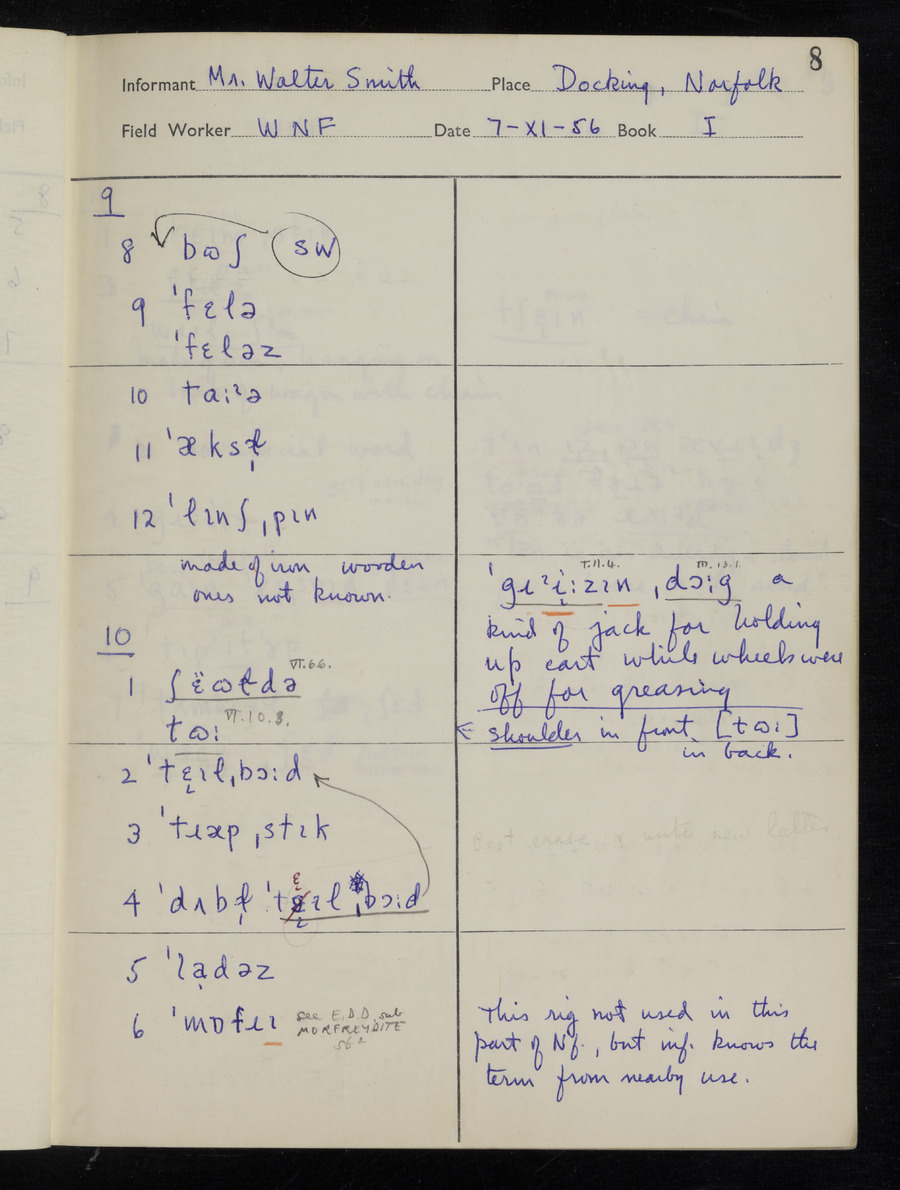 8
Informant Mr. Walter Smith Place Docking, Norfolk
Field Worker WNF Date 7-XI-56 Book I
9
8 bɷʃ SW
9 ˈfɛlə
ˈfɛləz
10 taːɪə
11 ˈæksɫ̩
12 ˈlɪnʃˌpɪn
made of iron wooden
ones not known.
10
1 ʃɛ̈ɷɫdə VI.6.6.
tɷː VI.10.3.
2 ˈtɛɪlˌbɔːd
3 ˈtɪæpˌstɪk
4 ˈdʌbɫ̩ ˈtɛɪlˌbɔːd
5 ˈlạdəz
6 ˈmɒfɪɪ see E.D.D. sub
MORFREYDITE
sb²
T.11.4. m.13.1.
ˈgɪɪiːzɪn ˌdɔːg a
kind of jack for holding
up cart while wheels were
off for greasing
shoulder in front [tɷː]
in back.
Best erase & write new letter
This rig not used in this
part of Nf., but inf. knows the
term from nearby use.